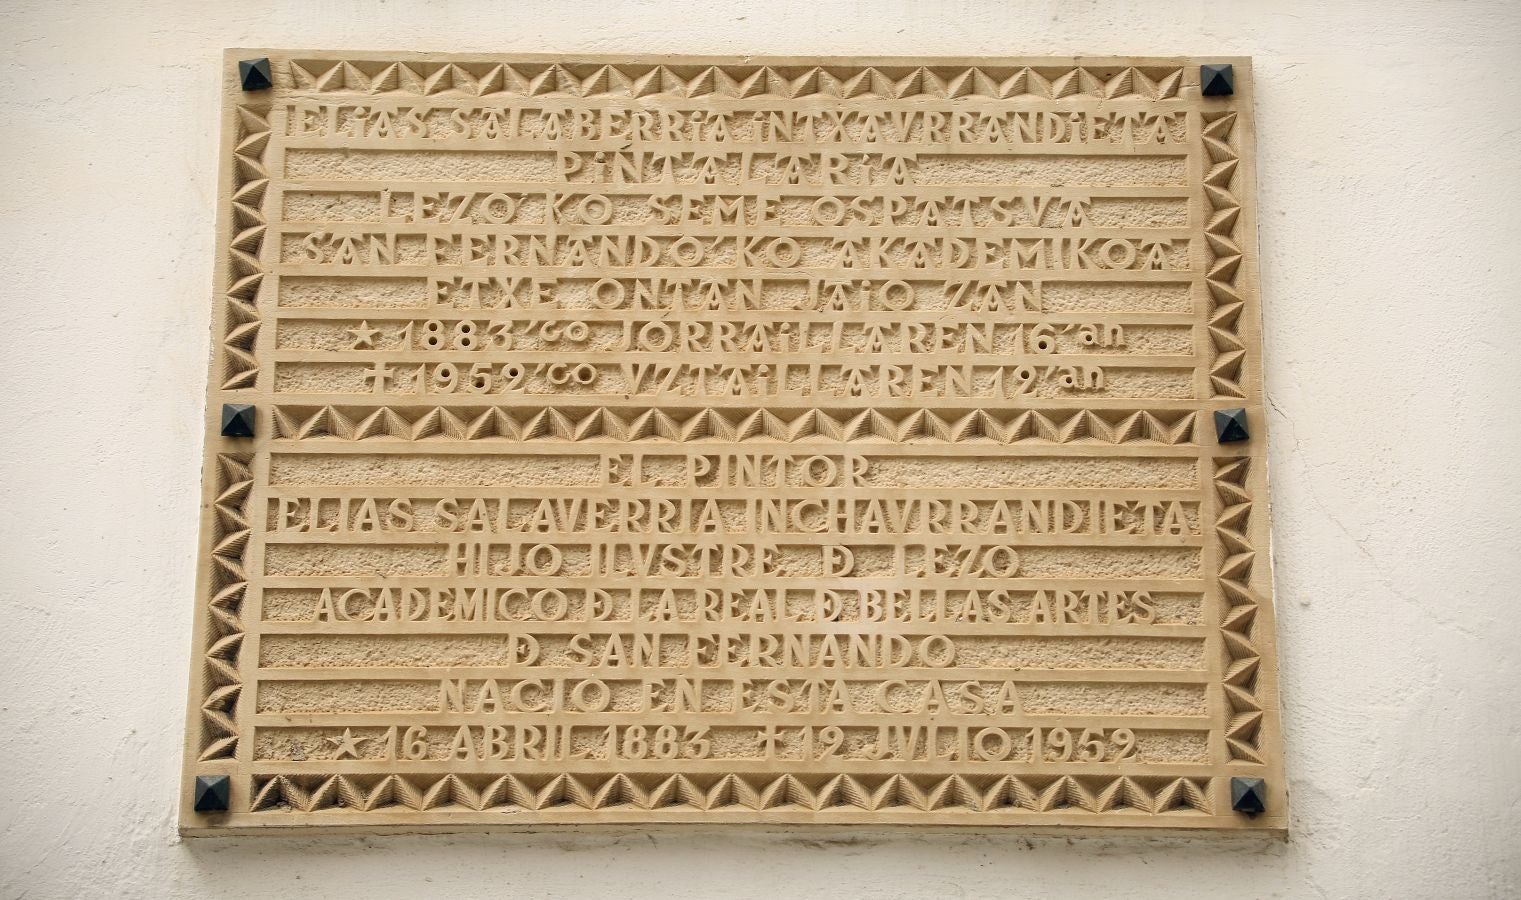 ELiAS SALABERRiA iNTXAVRRANDiETA
PiNTALARiA
LEZO'KO SEME OSPATSVA
SAN FERNANDO'KO AKADEMIKOA
ETXE ONTAN JAiO ZAN
★ 1883'co JORRAiLLAREN 16'an
✝ 1952'co VZTAiLLAREN 12'an
EL PINTOR
ELIAS SALAVERRIA INCHAVRRANDIETA
HIJO ILVSTRE Ð LEZO
ACADEMICO Ð LA REAL Ð BELLAS ARTES
Ð SAN FERNANDO
NACIO EN ESTA CASA
★ 16 ABRIL 1883 ✝ 12 JVLIO 1952